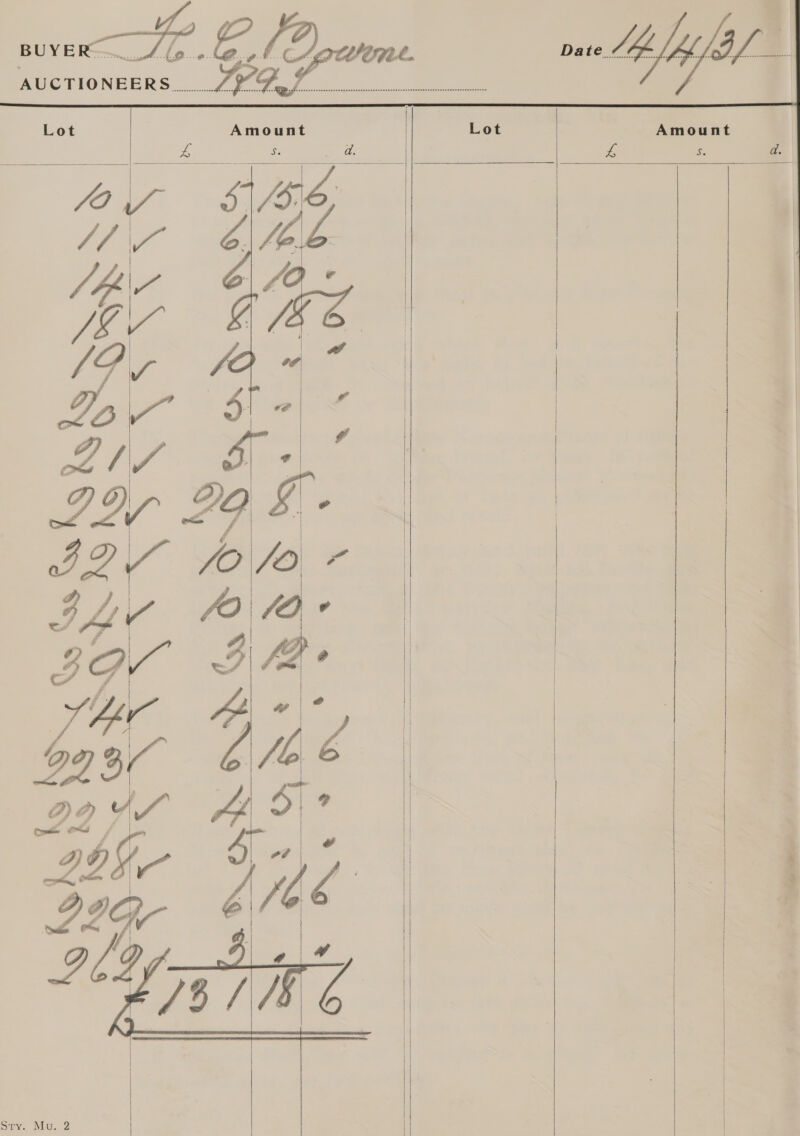 BUYER H. C. Downe. Date 14/4/31
AUCTIONEERS
Lot Amount Lot Amount
£ s. d. £ s. d.
10 ✓ 5 15. 6
11 ✓ 6. 16. 6
14 ✓ 6 10 -
18 ✓ 8 18 6
19 ✓ 10 - -
20 ✓ 5 - -
21 ✓ 5 - -
22 ✓ 29 8. -
32 ✓ 10 10 -
34 ✓ 10 10 -
39 ✓ 3 12 -
74 ✓ 4 - -
223 ✓ 6 16 6
224 ✓ 4 5 -
228 ✓ 5 - -
229 ✓ 6 16 6
262 ✓ 3 - -
£ 131 18 6
Sry. Mu. 2